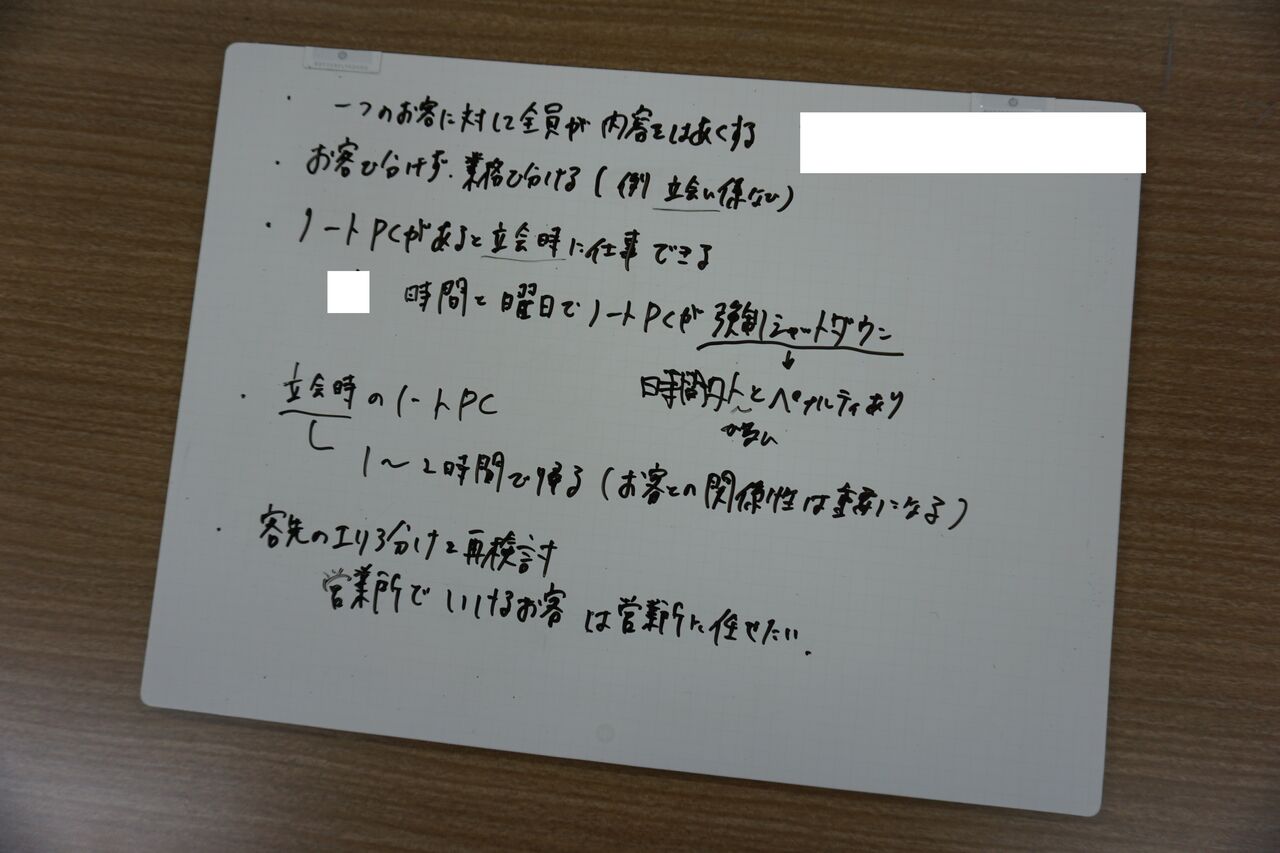 ・一つのお客に対して全員が内容をはあくする
・お客で分けず、業務で分ける（例 立会い係など）
・ノートPCがあると立会時に仕事できる
時間と曜日でノートPCが強制シャットダウン
↓
時間外とペナルティあり
多い
・立会時のノートPC
1〜2時間で帰る（お客との関係性は重要になる）
・客先のエリア分けを再検討
営業所でいけるお客は営業所に任せたい.